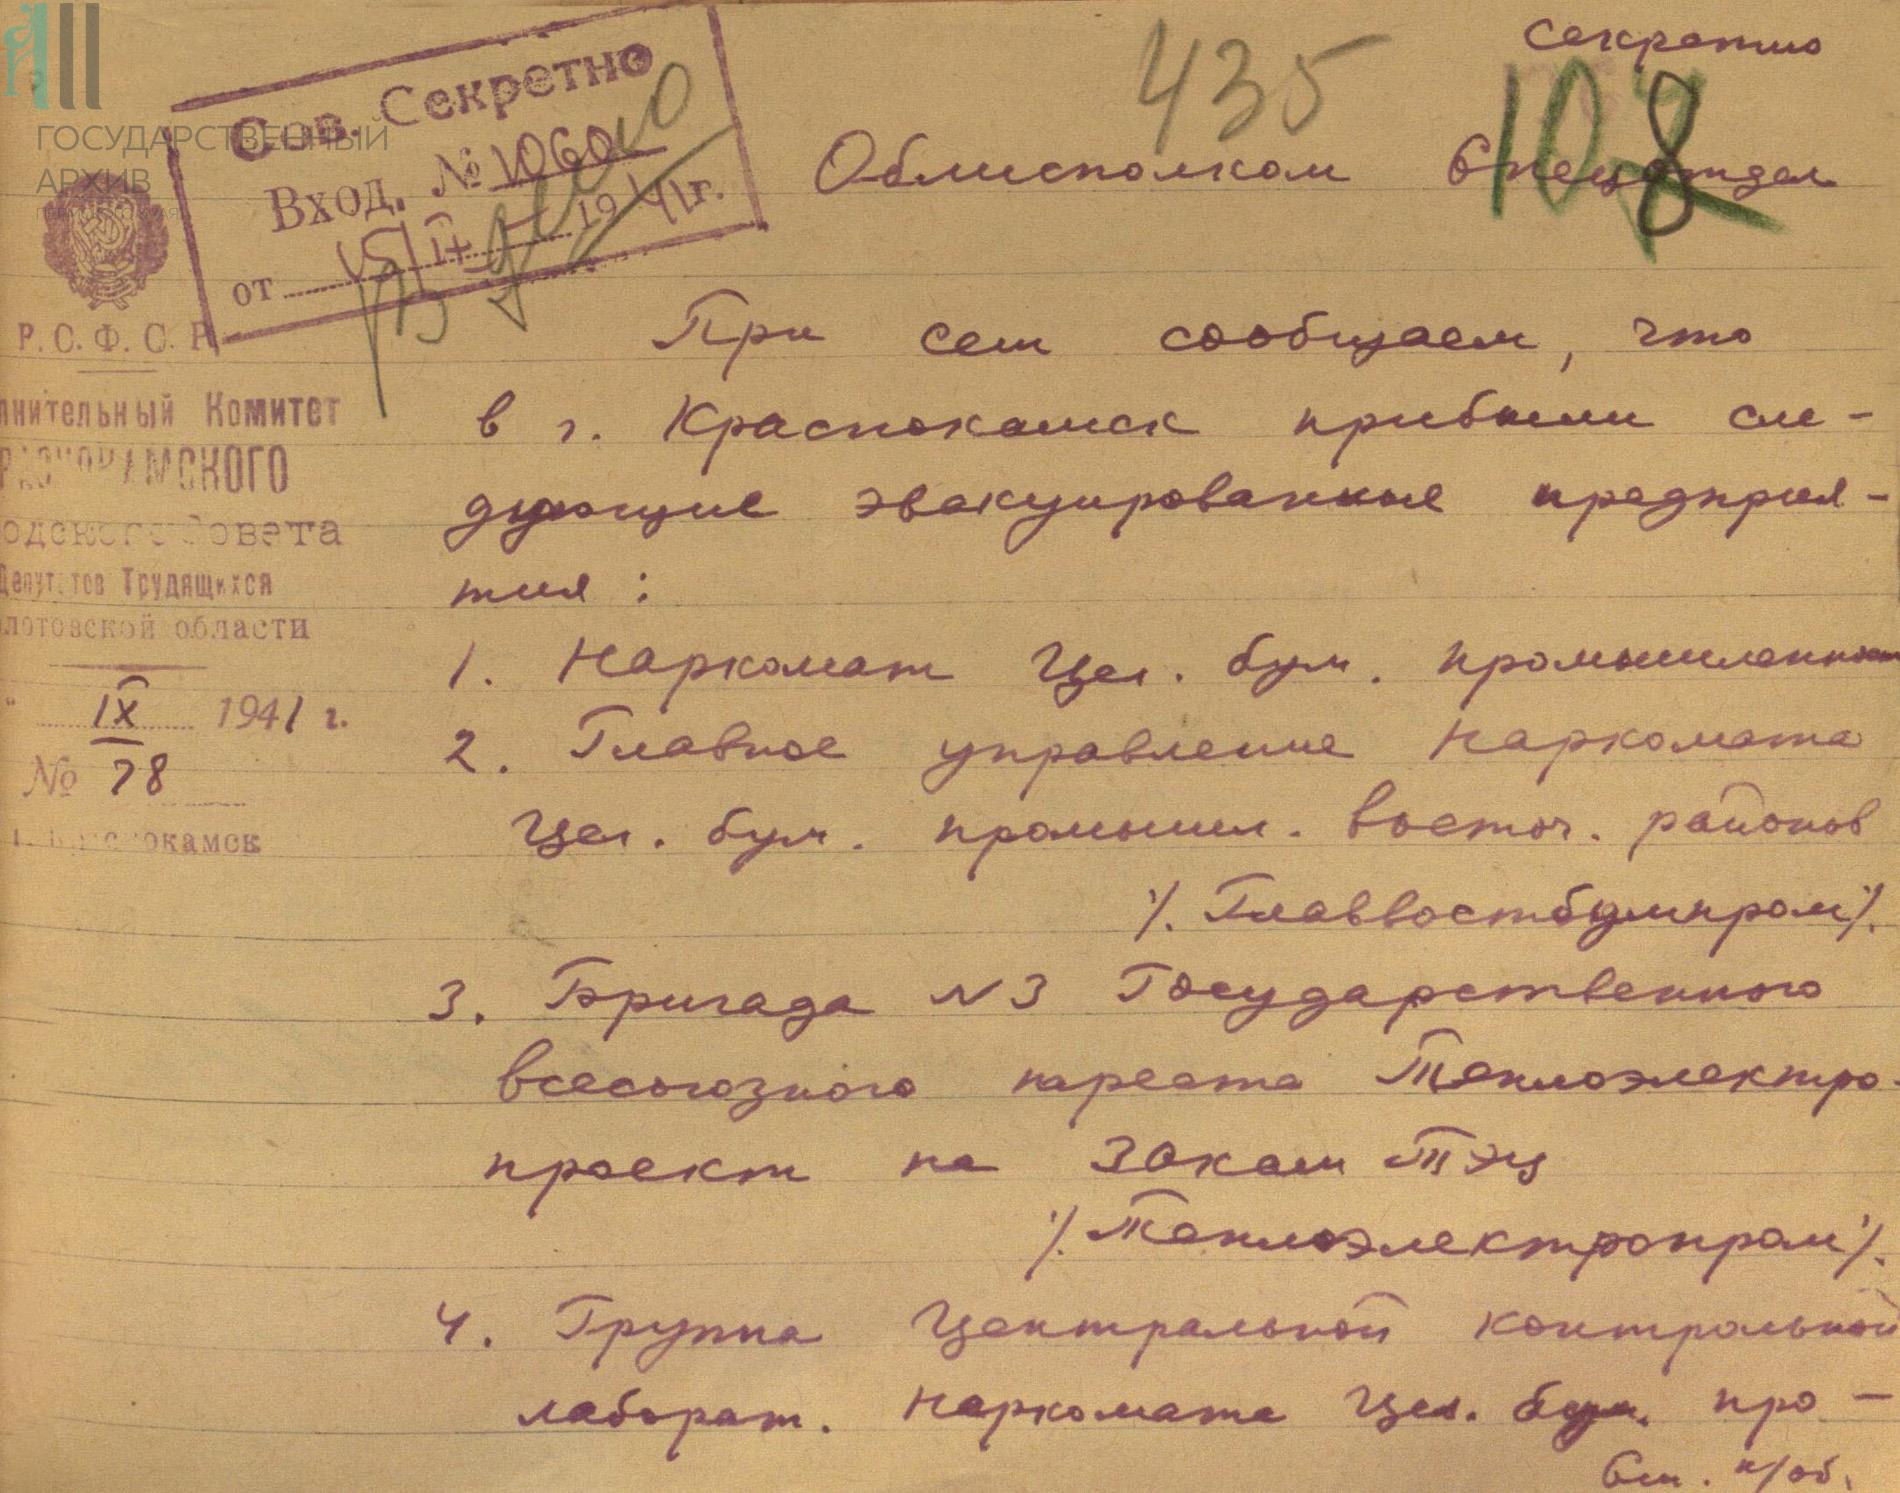 секретно
435
108
Сов. Секретно
Вход. № 1060
от 15/IX 1941 г.
В дело
ГОСУДАРСТВЕННЫЙ
АРХИВ
Облисполком Спецотдел
Р. С. Ф. С. Р.
лнительный Комитет
РАСНОКАМСКОГО
одского Совета
Депутатов Трудящихся
олотовской области
" IX 1941 г.
№ 78
г. Краснокамск
При сем сообщаем, что
в г. Краснокамск прибыли сле-
дующие эвакуированные предприя-
тия:
1. Наркомат Цел. бум. промышленност
2. Главное управление Наркомата
Цел. бум. промышл. восточ. районов
/. Главвостбумпром/.
3. Бригада N 3 Государственного
всесоюзного треста Теплоэлектро-
проект на Закам ТЭЦ
/. Теплоэлектропром/.
4. Группа Центральной контрольной
лаборат. Наркомата Цел. бум. про-
См. н/об.